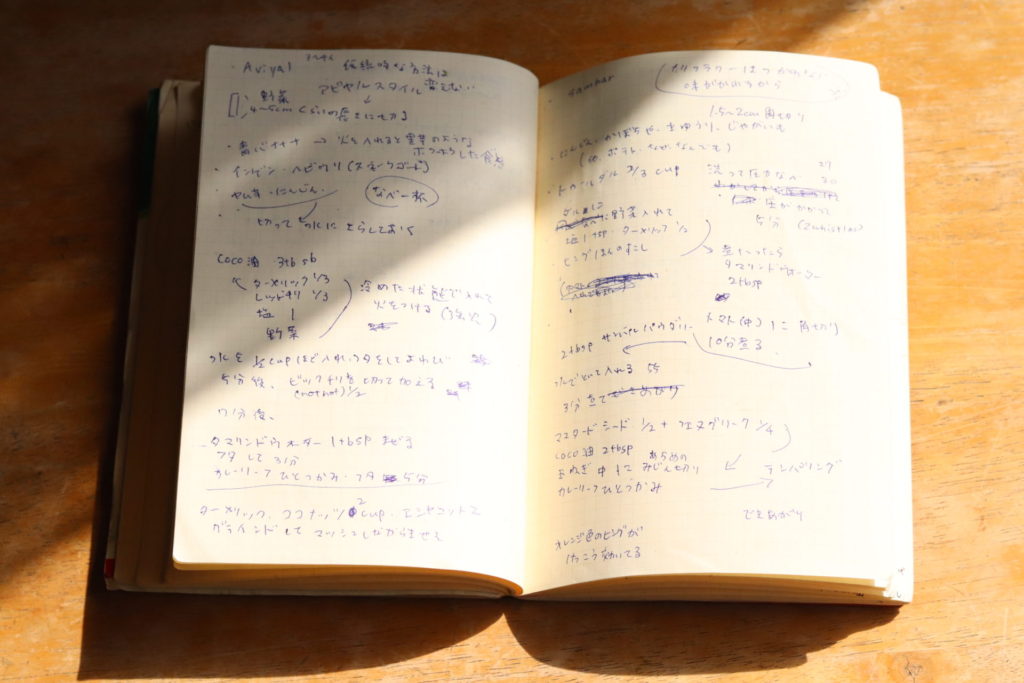 Aviyal
アビヤルスタイル 変えない
野菜
4~5cm くらいの長さに切る
・青バナナ → 火を入れると里芋のような
ホクホクした食感
・インゲン・ヘビウリ(スネークゴード)
ヤム芋・にんじん・
なべ一杯
切って水にさらしておく
coco油 3tbsb
ターメリック 1/3
レッドチリ 1/3
塩 1
野菜
冷めた状態で入れて
火をつける(強火)
水を 1/2 cupほど入れ
5分後、ビッグチリを切って加える
(not hot) 1/2
7分後、
タマリンドウォーター 1tbsp まぜる
フタして 3分
カレーリーフひとつかみ・フタ 5分
ターメリック、ココナッツ 2 cup・エシャロットを
グラインドして マッシュしながら混ぜる
sambar
味がかわるから
1.5~2cm 角切り
・にんじん、かぼちゃ、きゅうり、じゃがいも
(他、ポテト・なす・なんでも)
・トゥールダル 2/3 cup
洗って圧力なべ
圧がかかって
5分 (2whistles)
に野菜入れて
塩 1tsp・ターメリック 1/2
ヒングほんのすこし
煮たったら
タマリンドウォーター
2tbsp
トマト(中) 1こ 角切り
10分煮る
2tbsp サンバルパウダー
水でといて入れる
3分煮て
マスタードシード 1/2 + フェヌグリーク 1/4
coco油 2tbsp あらめの
玉ねぎ 中1こ みじん切り
カレーリーフひとつかみ
テンパリング
できあがり
オレンジ色のヒングが
けっこう効いてる